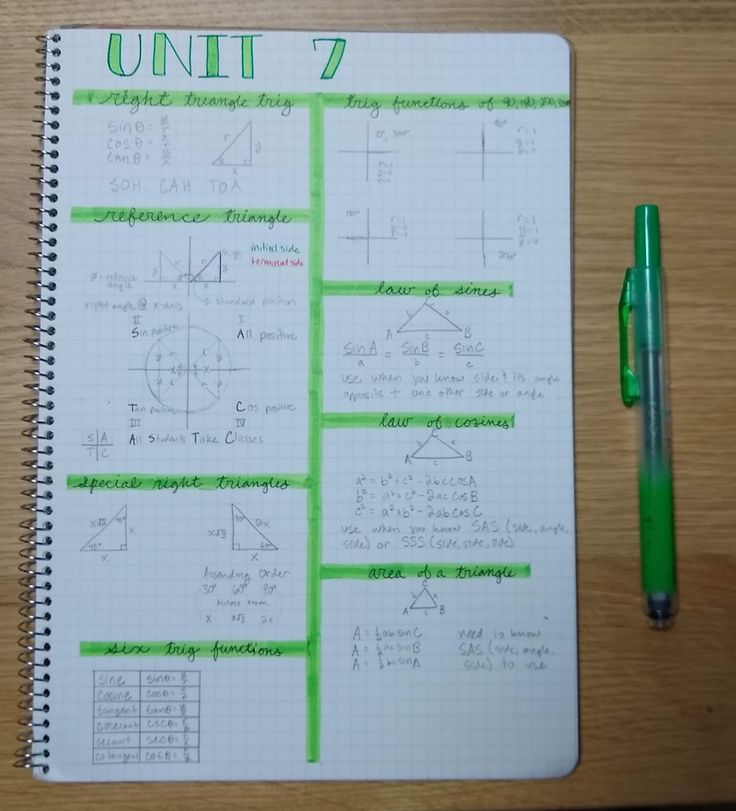 UNIT 7
right triangle trig
sin θ = y/r
cos θ = x/r
tan θ = y/x
r
y
θ
x
SOH CAH TOA
reference triangle
initial side
terminal side
= reference
angle
right angle @ x-axis
standard position
II
I
Sin positive
All positive
Tan positive
Cos positive
III
IV
S A
T C
All Students Take Classes
special right triangles
x√2
45°
x
45°
x
30°
2x
x√3
60°
x
Assending Order
30° 60° 90°
across from
x x√3 2x
six trig functions
sine sinθ=
cosine cosθ=
tangent tanθ=
cosecant cscθ=
secant secθ=
cotangent cotθ=
trig functions of 90, 180, 270, 360
0°, 360°
90°
r=1
y=1
x=0
180°
r=1
270°
law of sines
C
b a
A c B
sinA/a = sinB/b = sinC/c
use when you know side & its angle
opposite + one other side or angle
law of cosines
C
b a
A c B
a² = b² + c² - 2bc cosA
b² = a² + c² - 2ac cosB
c² = a² + b² - 2ab cosC
use when you know SAS (side, angle,
side) or SSS (side, side, side)
area of a triangle
C
b a
A c B
A = ½ab sinC need to know
A = ½ac sinB SAS (side, angle,
A = ½bc sinA side) to use